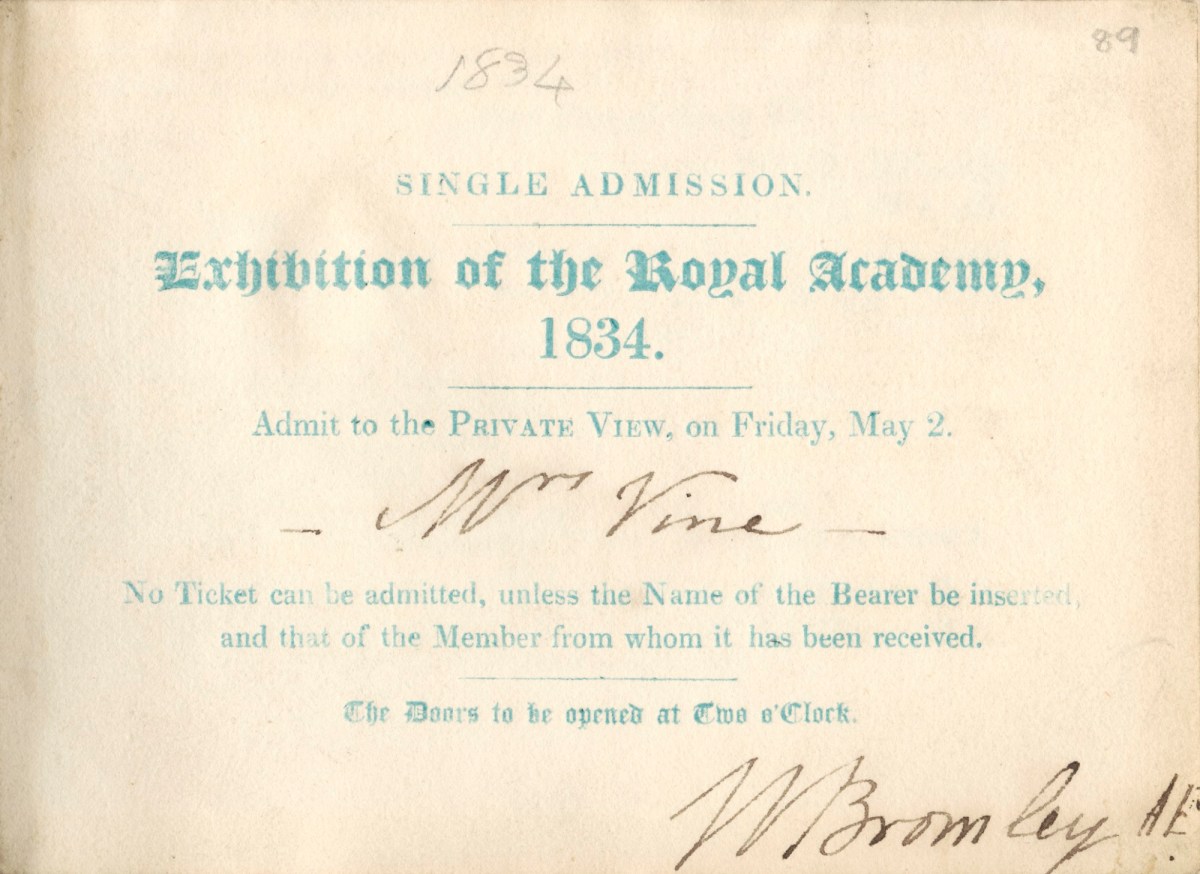 1834
89
SINGLE ADMISSION.
Exhibition of the Royal Academy,
1834.
Admit to the PRIVATE VIEW, on Friday, May 2.
— Mrs Vine —
No Ticket can be admitted, unless the Name of the Bearer be inserted,
and that of the Member from whom it has been received.
The Doors to be opened at Two o'Clock.
W Bromley AE